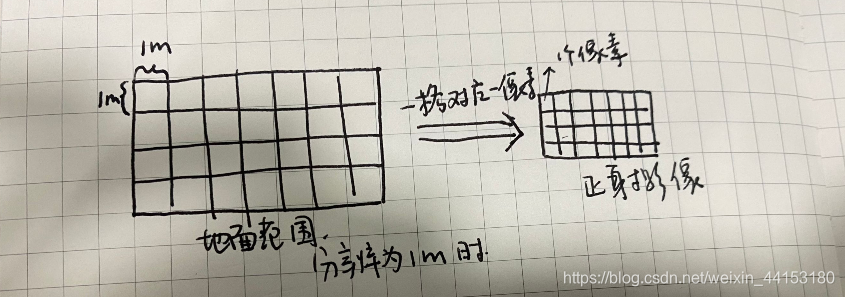 1m
1m
一格对应一像素
1个像素
正射影像
地面范围
分辨率为1m时
https://blog.csdn.net/weixin_44153180